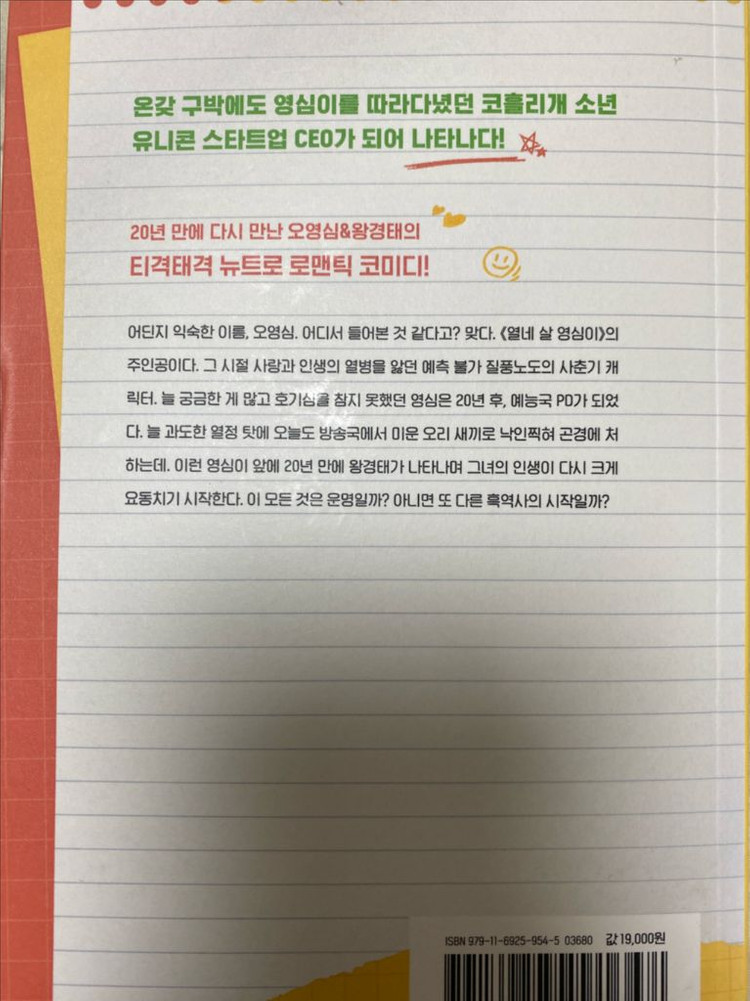 온갖 구박에도 영심이를 따라다녔던 코흘리개 소년
유니콘 스타트업 CEO가 되어 나타나다!
20년 만에 다시 만난 오영심&왕경태의
티격태격 뉴트로 로맨틱 코미디!
어딘지 익숙한 이름, 오영심. 어디서 들어본 것 같다고? 맞다. 《열네 살 영심이》의
주인공이다. 그 시절 사랑과 인생의 열병을 앓던 예측 불가 질풍노도의 사춘기 캐
릭터. 늘 궁금한 게 많고 호기심을 참지 못했던 영심은 20년 후, 예능국 PD가 되었
다. 늘 과도한 열정 탓에 오늘도 방송국에서 미운 오리 새끼로 낙인찍혀 곤경에 처
하는데. 이런 영심이 앞에 20년 만에 왕경태가 나타나며 그녀의 인생이 다시 크게
요동치기 시작한다. 이 모든 것은 운명일까? 아니면 또 다른 흑역사의 시작일까?
ISBN 979-11-6925-954-5 03680 값 19,000원